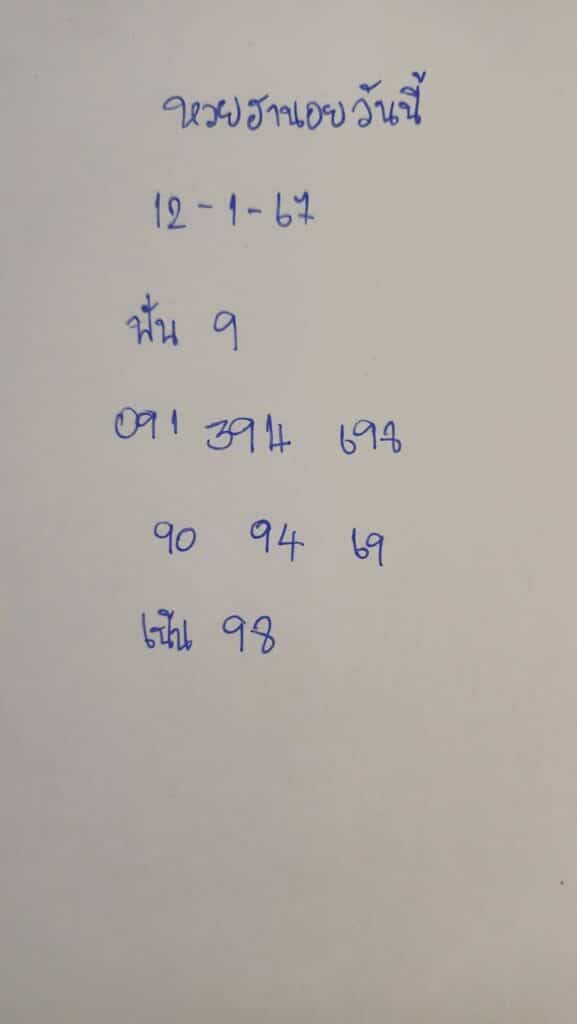 หวยฮานอยวันนี้
12-1-67
ฟั่น 9
091 394 698
90 94 69
เน้น 98